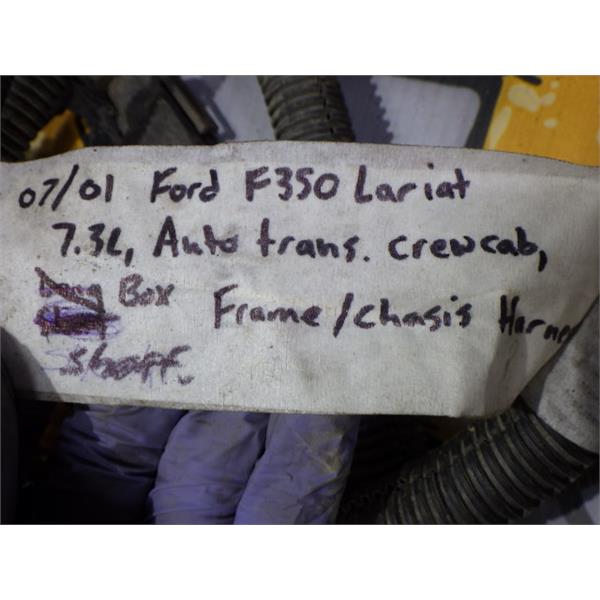 07/01 Ford F350 Lariat
7.3L, Auto trans. crewcab,
Long Box Frame/chasis Harne
short.